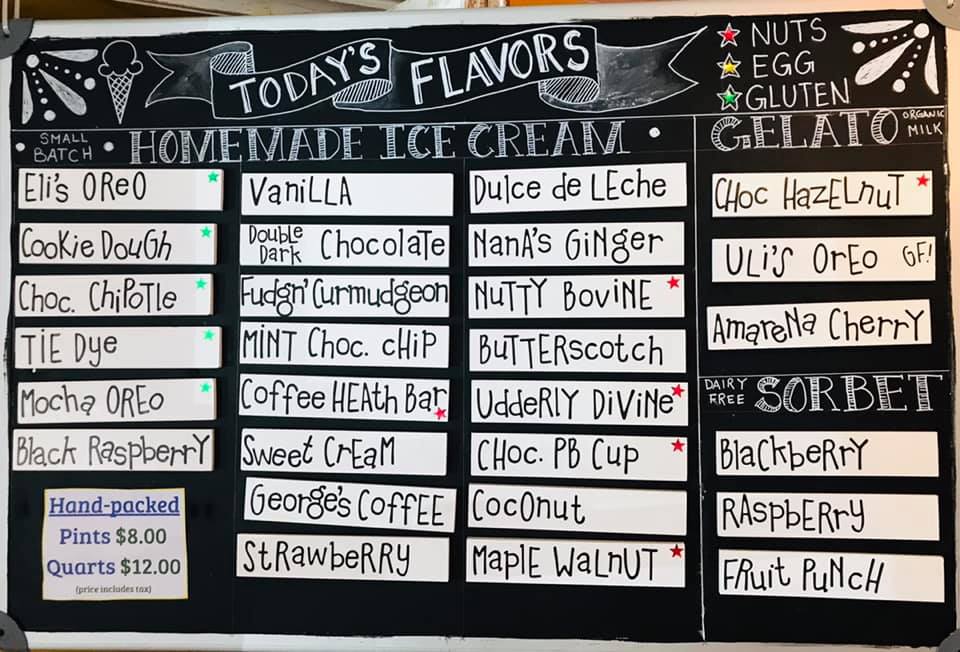 TODAY'S FLAVORS
NUTS
EGG
GLUTEN
SMALL BATCH
HOMEMADE ICE CREAM
Eli's OReO
Cookie DouGh
Choc. ChiPoTle
TiE Dye
Mocha OREo
Black RaspberrY
Hand-packed
Pints $8.00
Quarts $12.00
(price includes tax)
VaniLLA
Double Dark Chocolate
Fudgn' Curmudgeon
MiNT Choc. cHiP
Coffee HEAth Bar
Sweet CrEaM
George's CoffEE
StRawbeRRY
Dulce de LEche
NanA's GiNger
NuTTY BoviNE
BuTTERscotch
UddeRlY DiViNe
CHoc. PB Cup
CocOnut
MaplE WaLnUT
GELATO
ORGANIC MILK
CHoc HazELnuT
ULi'S OrEo GF!
AmareNa CherrY
DAIRY FREE
SORBET
BlackbeRRY
RAspbERry
FRuit PuNcH